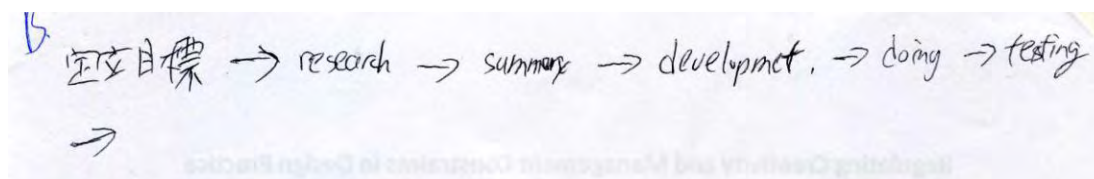 B. 定立目標 → research → summary → developmet. → doing → testing
→
Regulating Creativity and Management Constraints in Design Practice